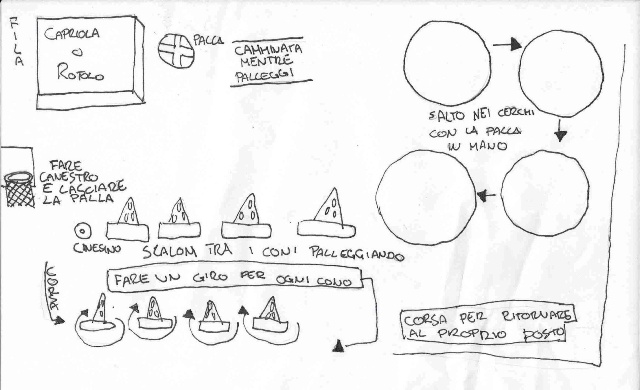 FILA
CAPRIOLA
O
ROTOLO
PALLA
CAMMINATA
MENTRE
PALLEGGI
SALTO NEI CERCHI
CON LA PALLA
IN MANO
FARE
CANESTRO
E LASCIARE
LA PALLA
CINESINO
SLALOM TRA I CONI PALLEGGIANDO
CORSA
FARE UN GIRO PER OGNI CONO
CORSA PER RITORNARE
AL PROPRIO POSTO